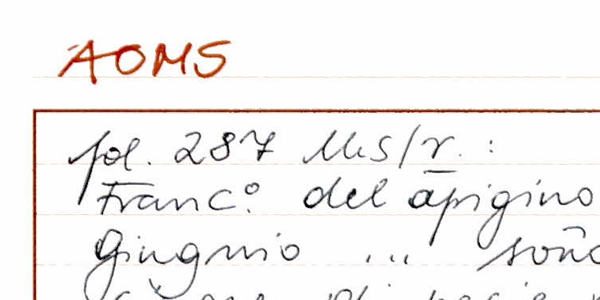 AOMS
fol. 287 Ms/r. :
Franc.° del apigino
Giugnio ...